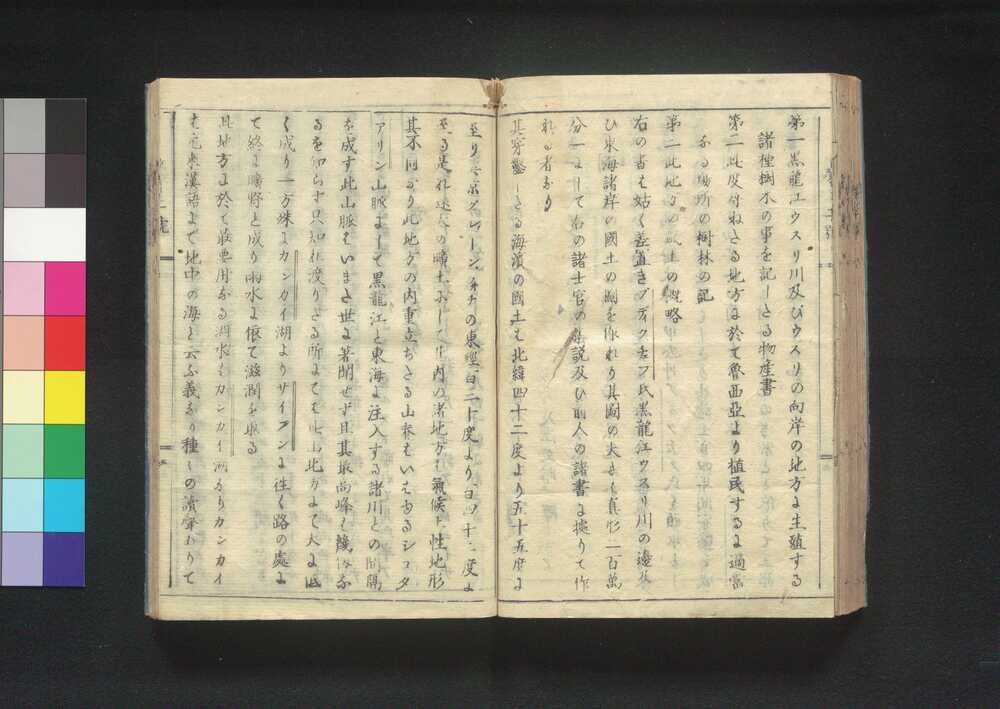 第一黒龍江ウスリ川及びウスリの向岸の地方に生殖する
諸種樹木の事を記したる物産書
第二此度付ねたる地方に於て魯西亜より植民するに適当
なる場所の樹林の記
第三此地方の風土の概略
右の書は姑く差置きブディクチフ氏黒龍江ウスリ川の邊及
ひ東海諸岸の國土の圖を作れり其圖の大さは真形二百萬
分一にして右の諸士官の 説及ひ前人の諸書に據りて作
れる者なり
其穿鑿したる海濱の國土は北緯四十二度より五十五度に
至り の東經百二十度より百四十 度に
至る是れ 大の 土にして其内の諸地方は氣候土性地形
其不同あり此地方の内重立ちたる山脊はいはゆるシヨタ
アリン山脈にして黒龍江と東海に注入する諸川との間隔
を成す此山脈はいまた世に著聞せず且其最高峰は幾何な
るを知らす只知れ渡りたる所にては此山北方にて大に低
く成り一方殊にカンカイ湖よりサイフンに往く路の處に
て終に曠野と成り雨水に依て滋潤を取る
此地方に於て最要用なる湖水はカンカイ湖なりカンカイ
は元来漢語にて地中の海と云ふ義なり種々の讀聲ありて